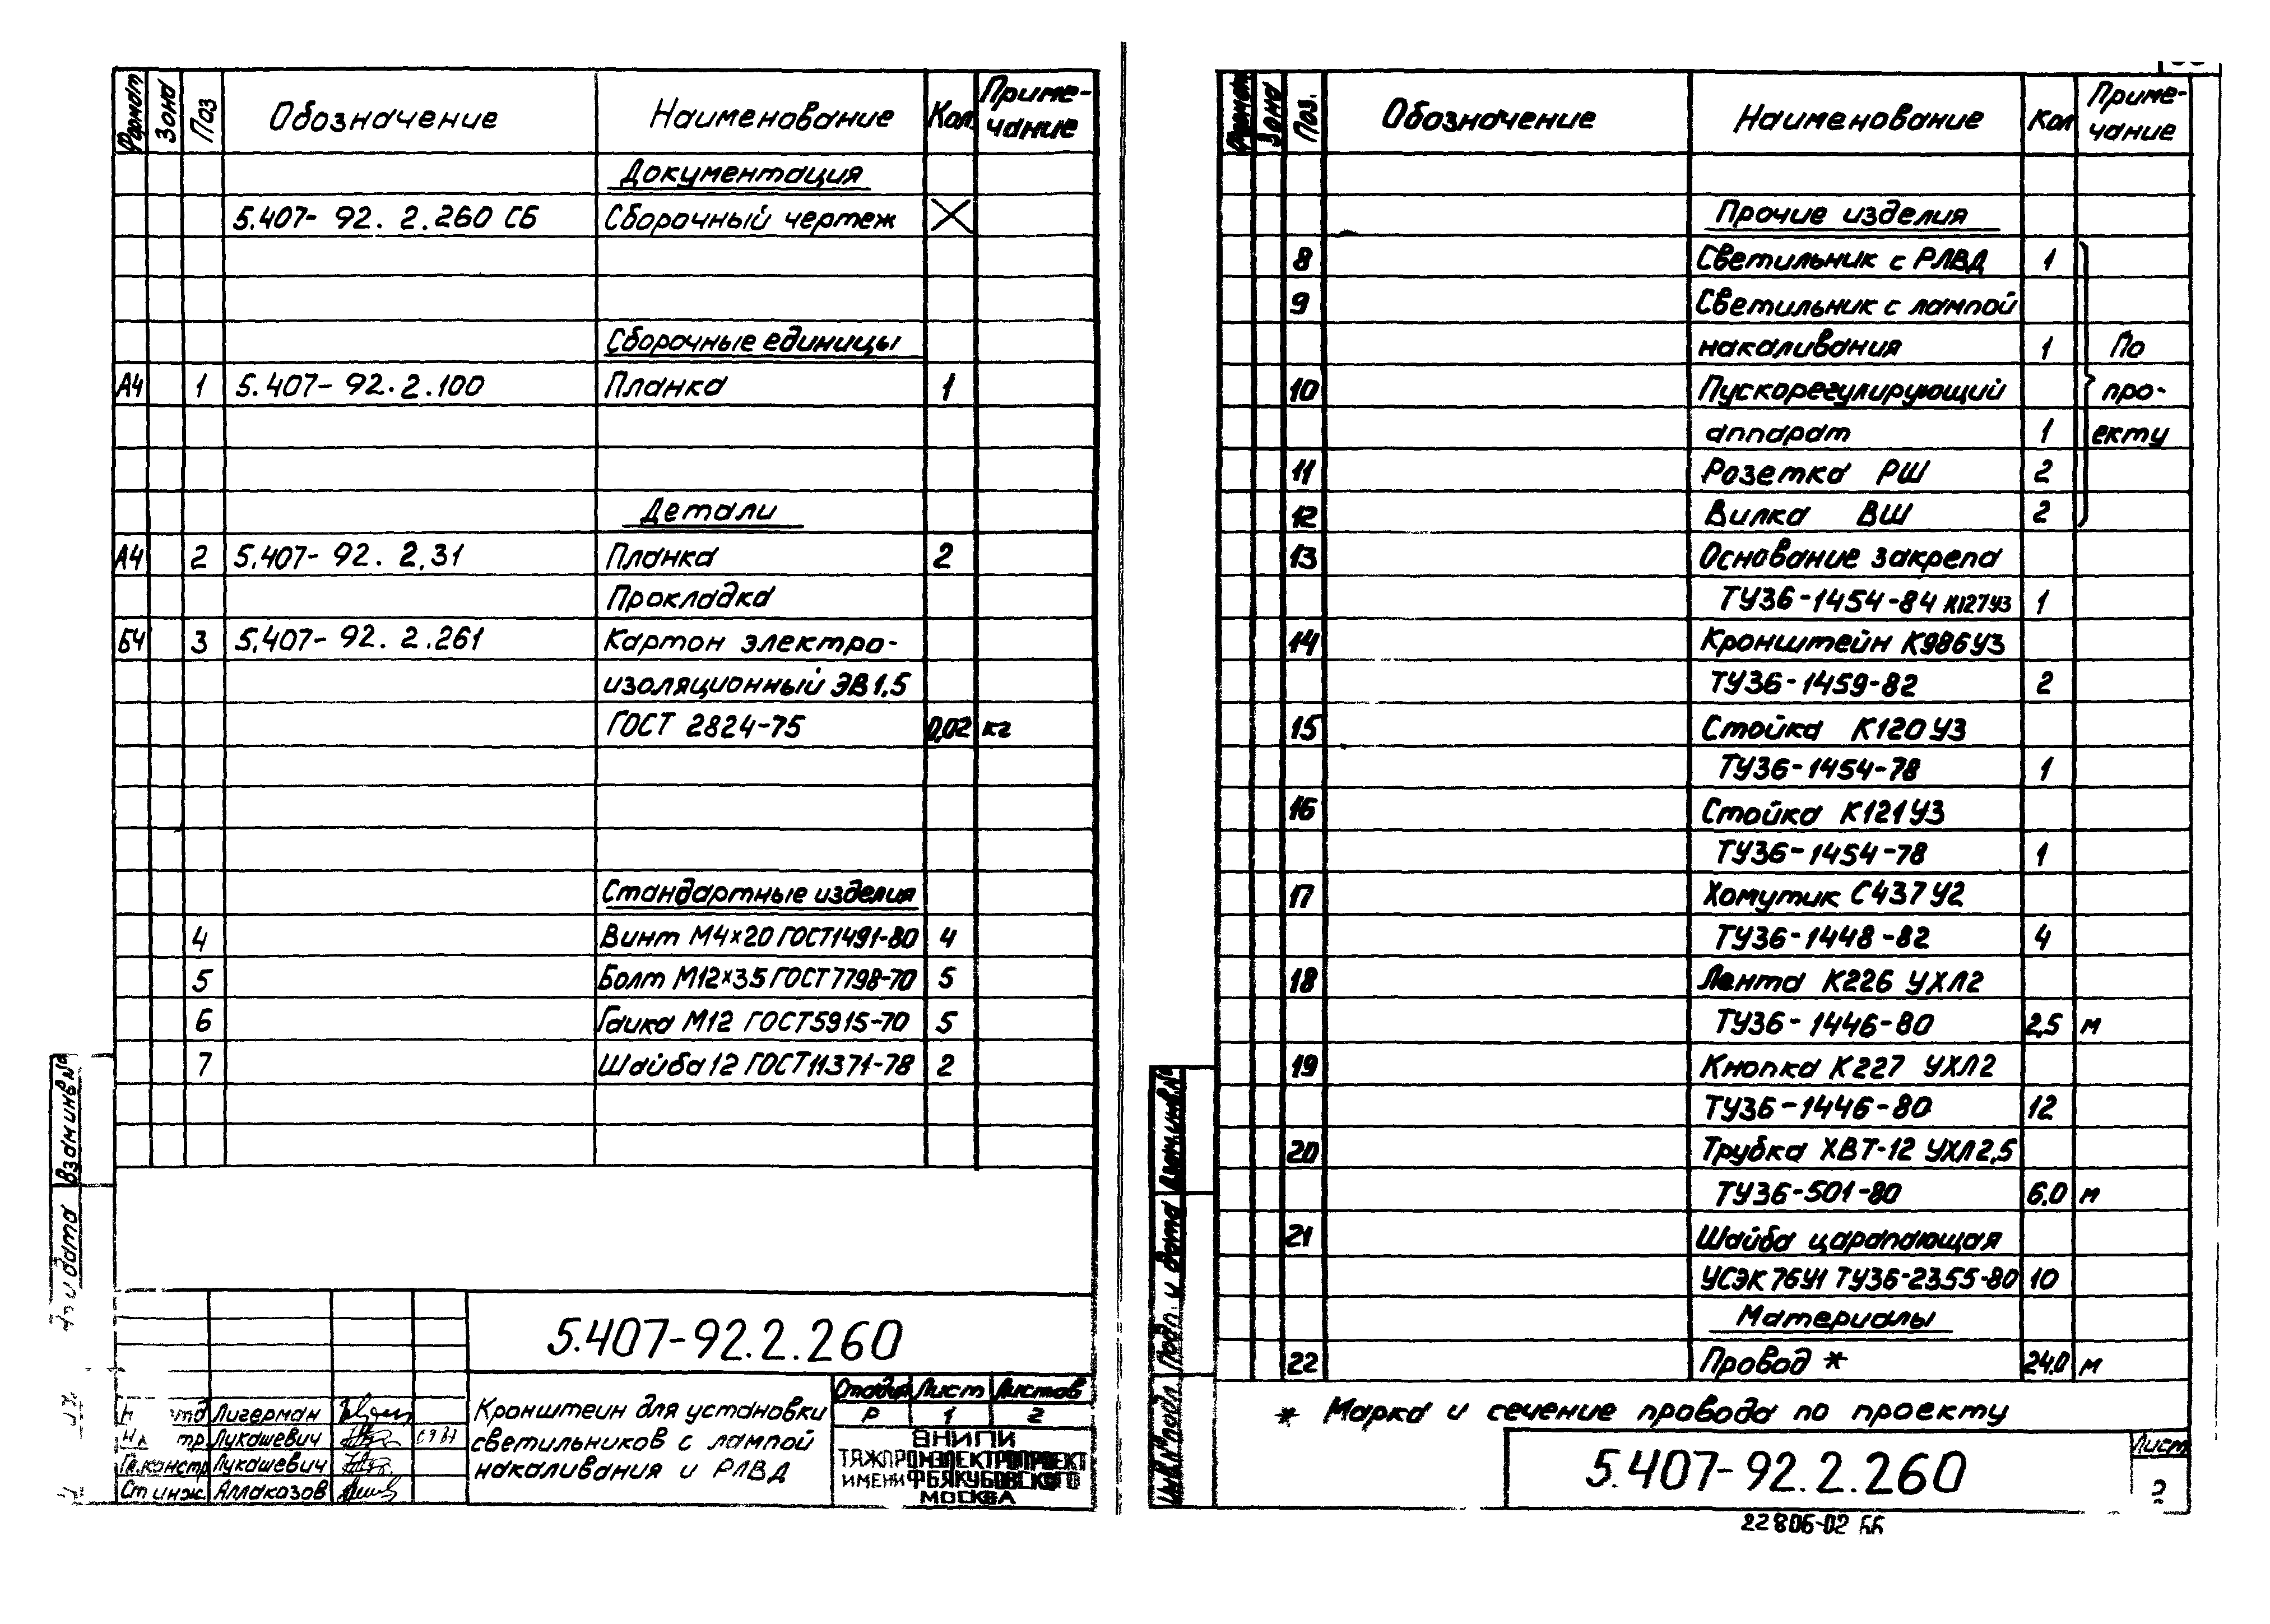 Формат Зона Поз Обозначение Наименование Кол. Приме-
чание
Документация
5.407-92.2.260 СБ Сборочный чертеж
Сборочные единицы
А4 1 5.407-92.2.100 Планка 1
Детали
А4 2 5.407-92.2.31 Планка 2
Прокладка
БЧ 3 5.407-92.2.261 Картон электро-
изоляционный ЭВ1,5
ГОСТ 2824-75 0,02 кг
Стандартные изделия
4 Винт М4×20 ГОСТ1491-80 4
5 Болт М12×35 ГОСТ7798-70 5
6 Гайка М12 ГОСТ5915-70 5
7 Шайба 12 ГОСТ11371-78 2
Взам инв №
и дата
5.407-92.2.260
Лигерман
Лукашевич
Гл.констр Лукашевич
Ст инж. Аллаказов
Кронштейн для установки
светильников с лампой
накаливания и РЛВД
Стадия Лист Листов
Р 1 2
ВНИПИ
ТЯЖПРОМЭЛЕКТРОПРОЕКТ
ИМЕНИ Ф.Б.ЯКУБОВСКОГО
МОСКВА
Формат Зона Поз. Обозначение Наименование Кол Приме-
чание
Прочие изделия
8 Светильник с РЛВД 1
9 Светильник с лампой
накаливания 1 По
10 Пускорегулирующий про-
аппарат 1 екту
11 Розетка РШ 2
12 Вилка ВШ 2
13 Основание закрепа
ТУ36-1454-84 К127У3 1
14 Кронштейн К986У3
ТУ36-1459-82 2
15 Стойка К120У3
ТУ36-1454-78 1
16 Стойка К121У3
ТУ36-1454-78 1
17 Хомутик С437У2
ТУ36-1448-82 4
18 Лента К226 УХЛ2
ТУ36-1446-80 2,5 м
19 Кнопка К227 УХЛ2
ТУ36-1446-80 12
20 Трубка ХВТ-12 УХЛ2,5
ТУ36-501-80 6,0 м
21 Шайба царапающая
УСЭК 76У1 ТУ36-2355-80 10
Материалы
22 Провод * 24,0 м
* Марка и сечение провода по проекту
Инв.№ подл. Подп. и дата Взам.инв.№
5.407-92.2.260
Лист
2
22806-02 66